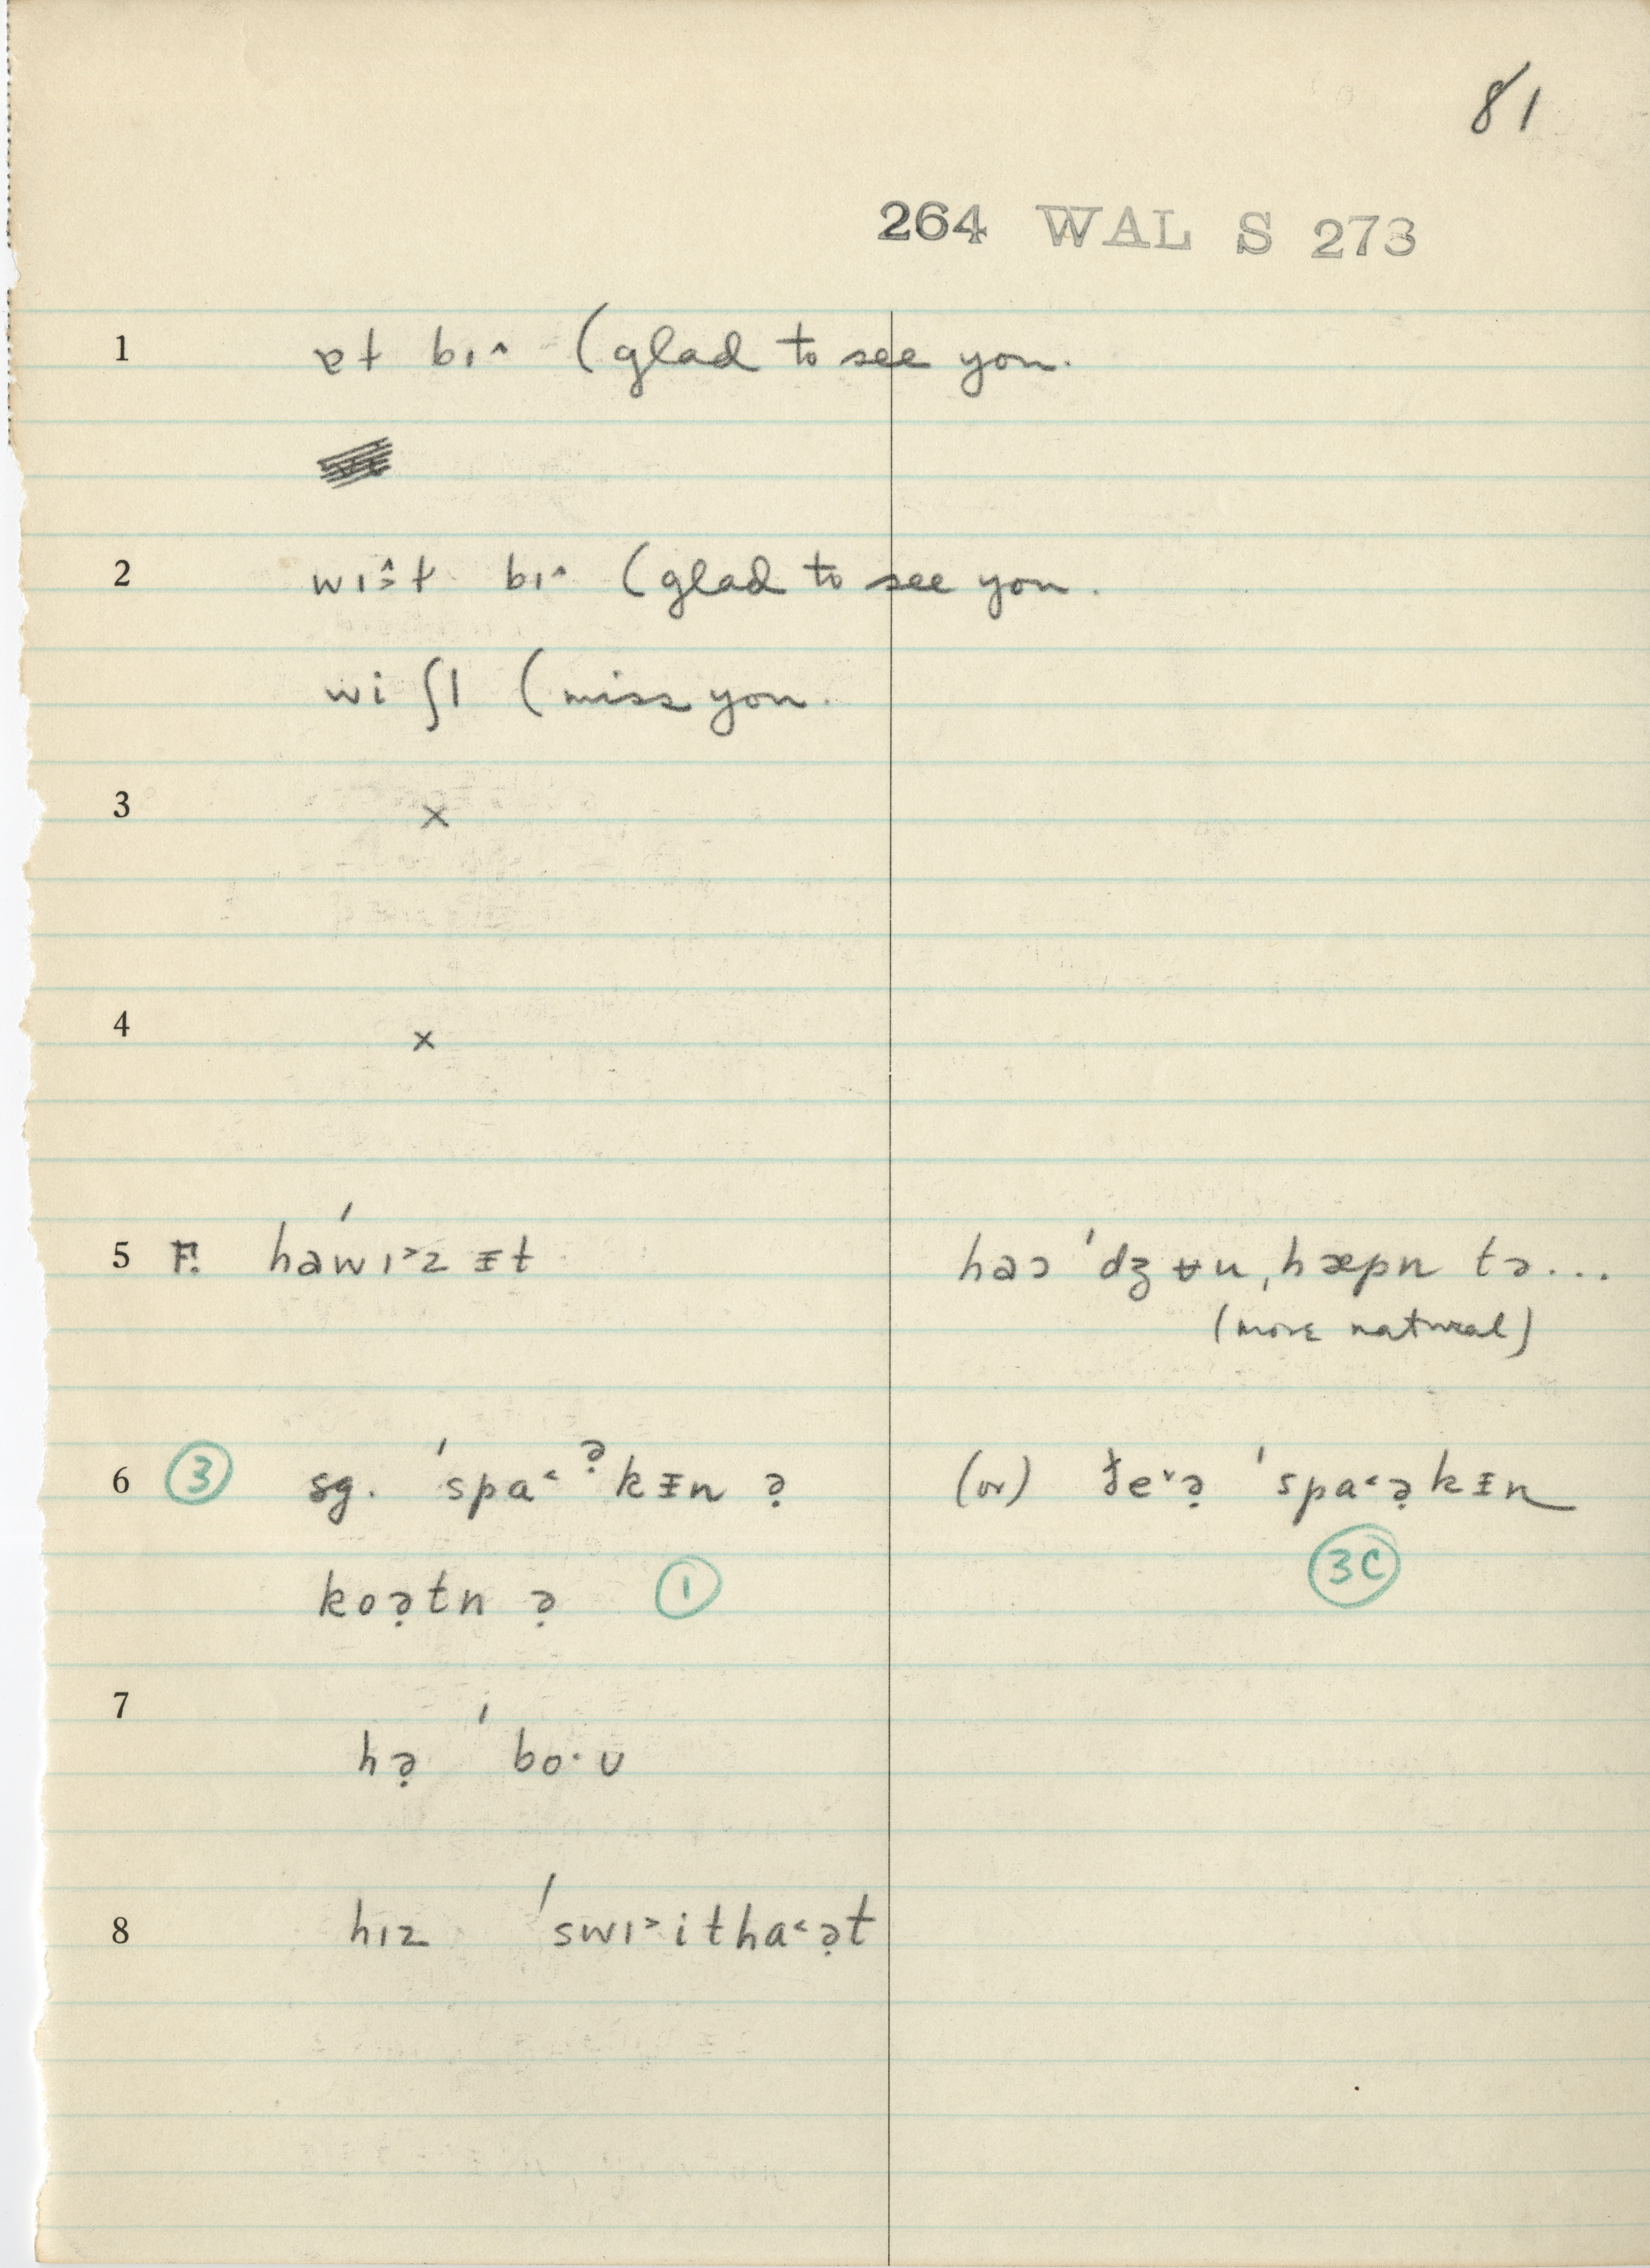 81
264 WAL S 273
1 ɐɫ bɪ^ (glad to see you.
2 wɪ^>ɫ bɪ^ (glad to see you.
wi ʃɪ (miss you.
3 x
4 x
5 F. haˈwɪ˃z ᵻt haɔ ˈdʒʉu, hæpn tə...
(more natural)
6 ③ sg. ˈspa˂ə̣kᵻn ə̣ (or) ðe˅ə̣ ˈspa˂ə̣kᵻn
koə̣tn ə̣ ① 3C
7
hə̣ ˈbo·ʊ
8 hɪz ˈswɪ˃itha˂ə̣t